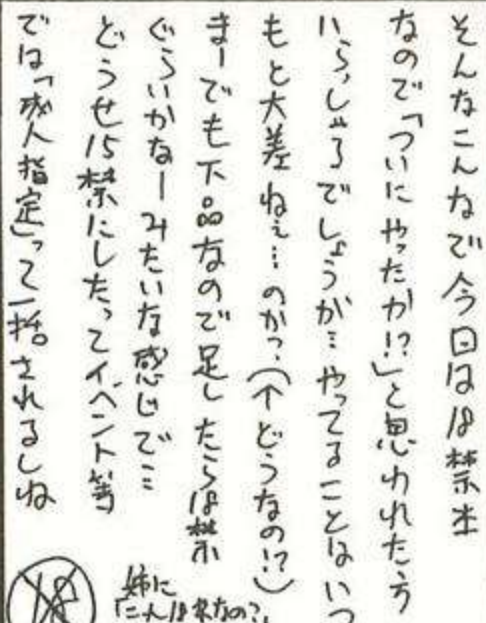 そんなこんなで今回は18禁本
なので「ついにやったか!?」と思われた方
いらっしゃるでしょうが…やってることはいつ
もと大差ねぇ…のか?(↑どうなの!?)
まーでも下品なので足したら18禁
ぐらいかなーみたいな感じで…
どうせ15禁にしたってイベント等
では「成人指定」って一括されるしね
18
姉に
「これ18禁なの?」